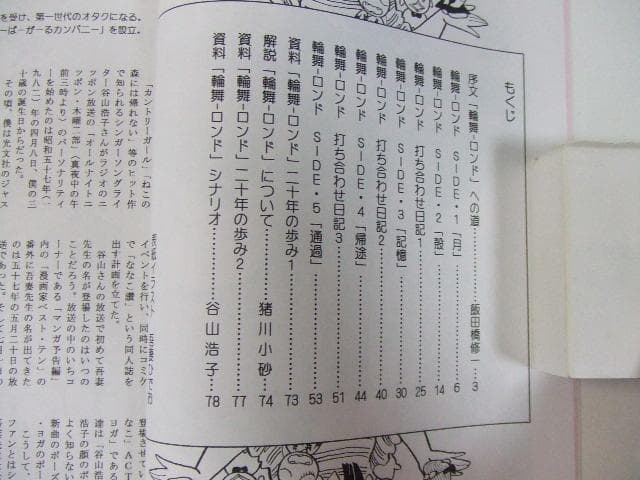 もくじ
序文「輪舞-ロンド」への道………………飯田橋修一…3
輪舞-ロンド SIDE・1「月」………………6
輪舞-ロンド SIDE・2「殻」………………14
輪舞-ロンド 打ち合わせ日記1………………25
輪舞-ロンド SIDE・3「記憶」………………30
輪舞-ロンド 打ち合わせ日記2………………40
輪舞-ロンド SIDE・4「帰途」………………44
輪舞-ロンド 打ち合わせ日記3………………51
輪舞-ロンド SIDE・5「通過」………………53
資料「輪舞-ロンド」二十年の歩み1…………73
解説「輪舞-ロンド」について………猪川小砂…74
資料「輪舞-ロンド」二十年の歩み2…………77
資料「輪舞-ロンド」シナリオ………谷山浩子…78
を受け、第一世代のオタクになる。
ーぱーがーるカンパニー」を設立。
「カントリーガール」「ねこの
森には帰れない」等のヒット作
で知られるシンガーソングライ
ター谷山浩子さんがラジオのニ
ッポン放送の「オールナイトニ
ッポン・木曜二部」（真夜中の午
前三時より）のパーソナリティ
ーを始めたのは昭和五十七年（一
九八二）年の四月八日、僕の三
十歳の誕生日からだった。
その頃、僕は光文社のジャス
イベントを行い、同時にコミケ
で「ななこ讃」という同人誌を
出す計画を立てた。
谷山さんの放送で初めて吾妻
先生の名が登場したのはいつの
ことだろう。放送の中のいちコ
ーナーである「マンガ予告編」
内の「漫画家ベスト・テン」の
番外に吾妻先生の名が出てきた
のは五十七年の五月二十日の放
送であった。そして七月一
登場させてい
なこ」ACT
ヨガ」である
達は「谷山浩
浩子の顔のポ
よく知らない
新曲のポーズ
・ヨガのポー
こうして、
ファンとはシ